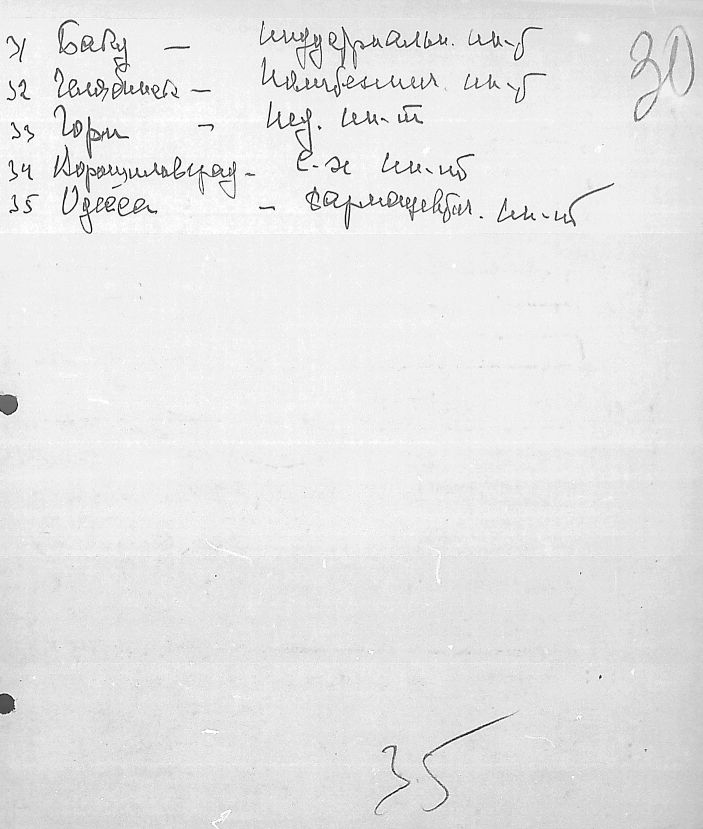 30
31 Баку – индустриальн. ин-т
32 Челябинск – ин-т
33 Гори – пед. ин-т
34 Ворошиловград - с-х ин-т
35 Одесса – фармацевтич. ин-т
35